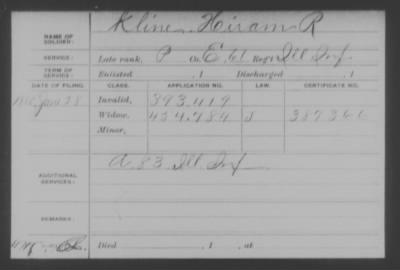 NAME OF SOLDIER: Kline, Hiram R
SERVICE: Late rank, P Co. E, 61 Reg't Ill Inf
TERM OF SERVICE: Enlisted , 1 Discharged , 1
DATE OF FILING. CLASS. APPLICATION NO. LAW. CERTIFICATE NO.
Jan 28 Invalid, 393.419
Widow, 454.784 387366
Minor,
ADDITIONAL SERVICES: A. 83 Ill Inf
REMARKS:
Died , 1 , at